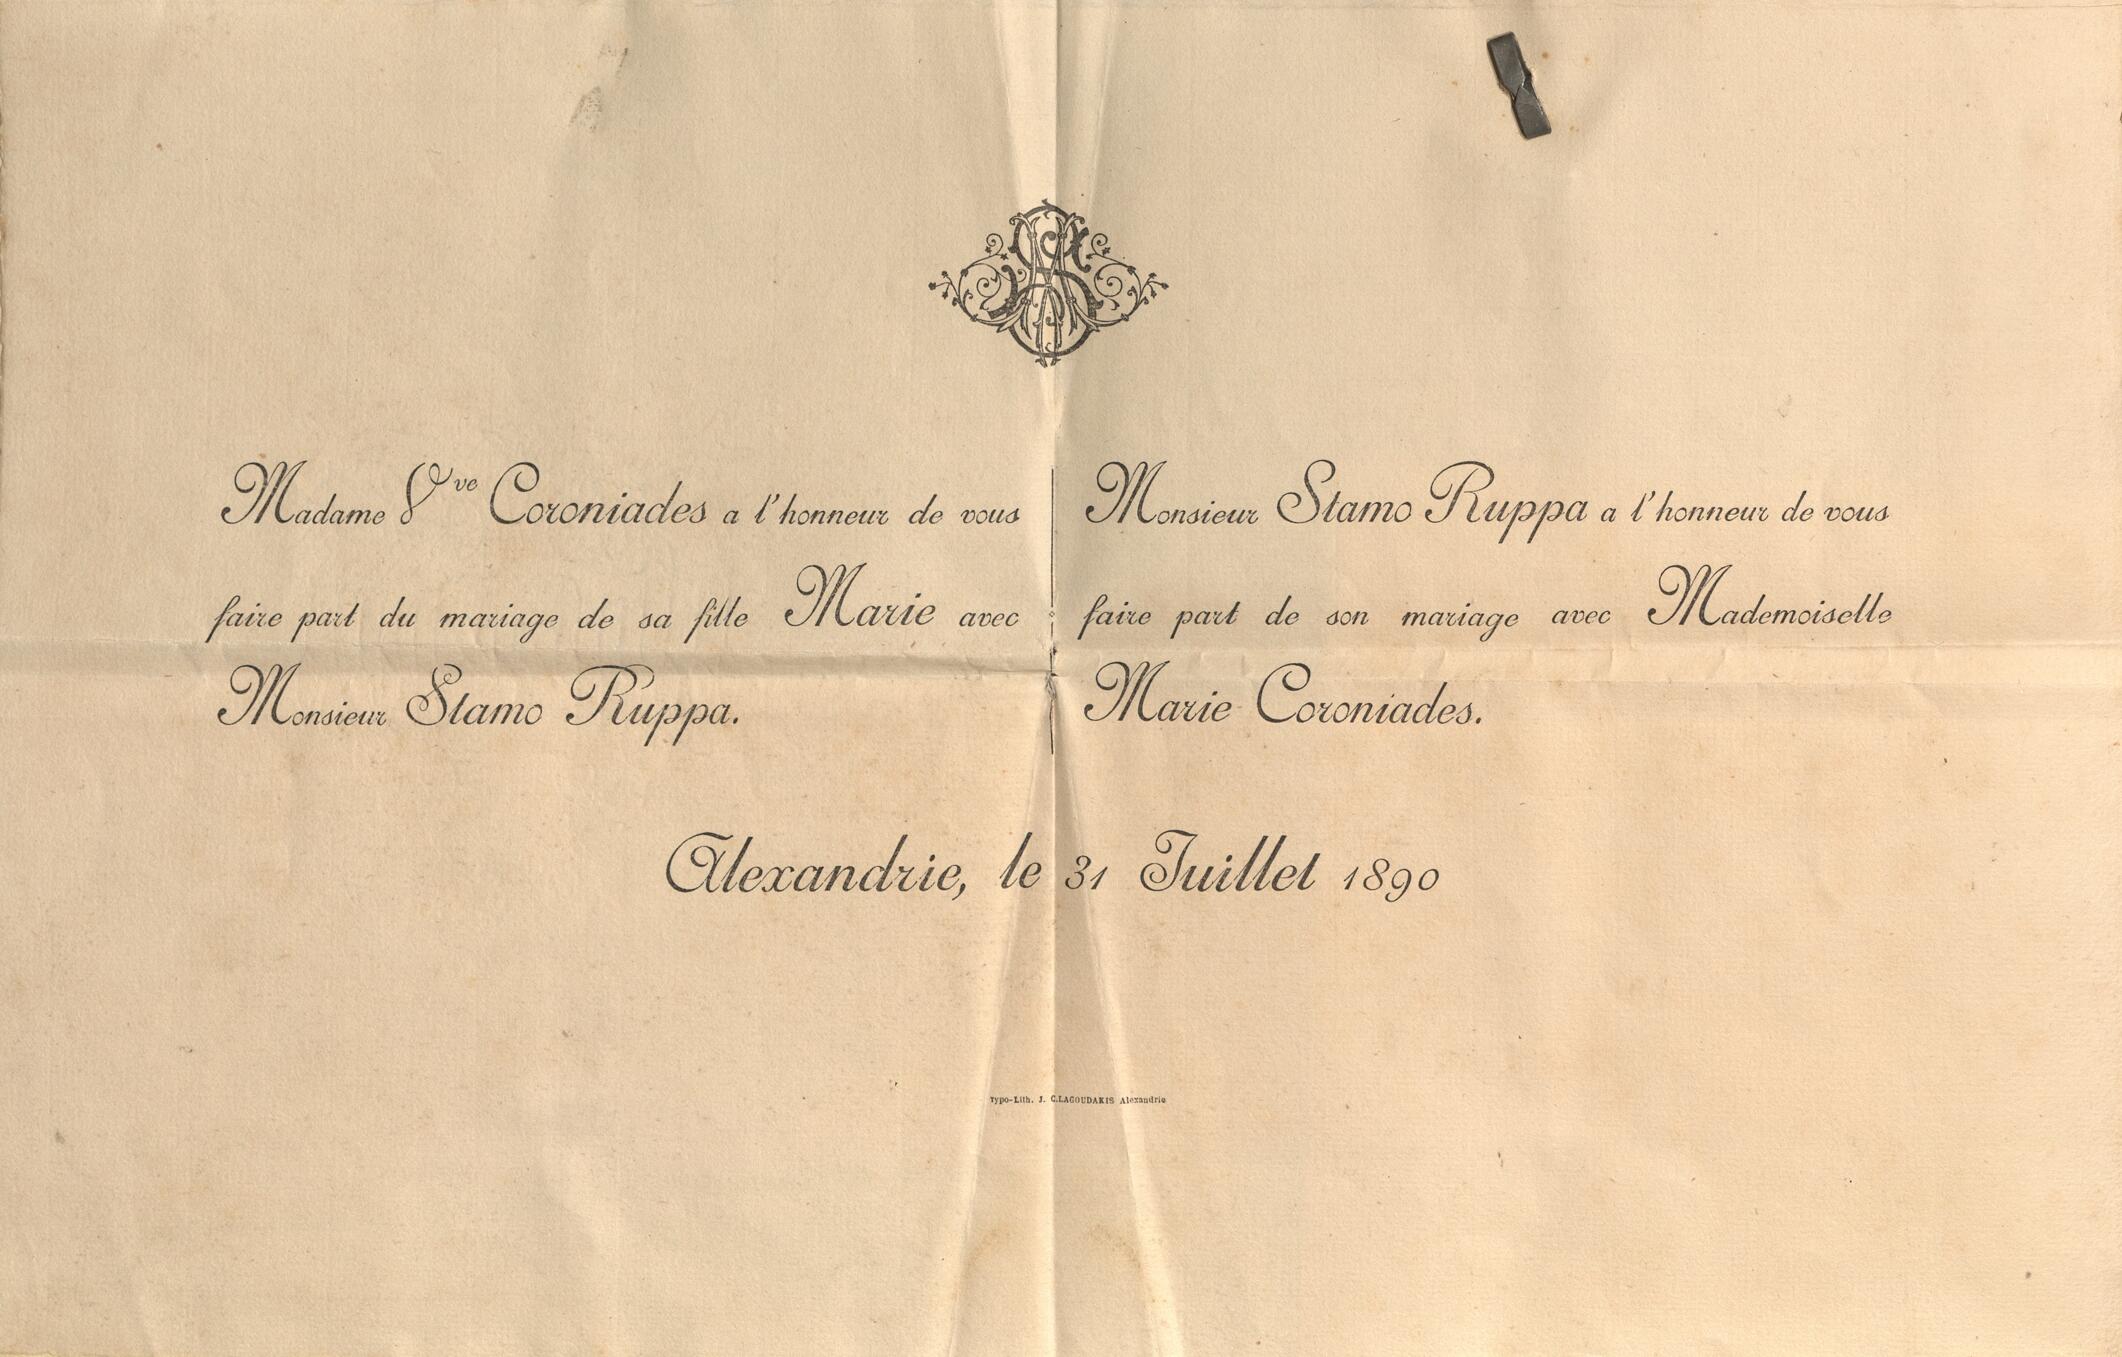 Madame Vve Coroniades a l'honneur de vous
faire part du mariage de sa fille Marie avec
Monsieur Stamo Ruppa.
Monsieur Stamo Ruppa a l'honneur de vous
faire part de son mariage avec Mademoiselle
Marie Coroniades.
Alexandrie, le 31 Juillet 1890
Typo-Lith. J. C. LAGOUDAKIS Alexandrie